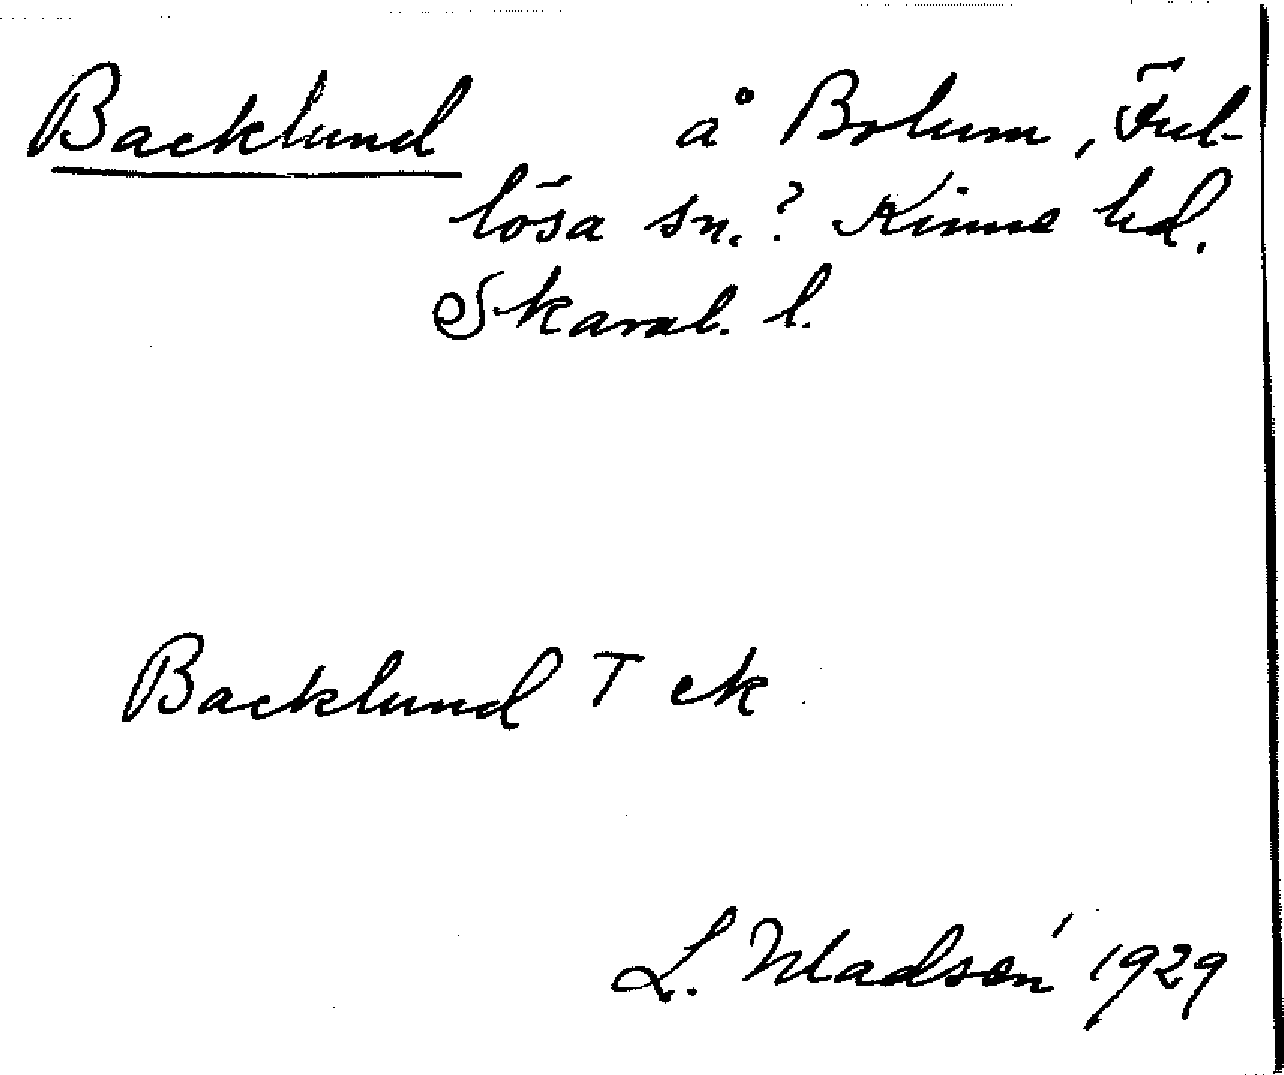 Backlund å Bolum, Ful-
lösa sn.? Kinne hd.
Skarab. l.
Backlund T ek
L. Madsén 1929